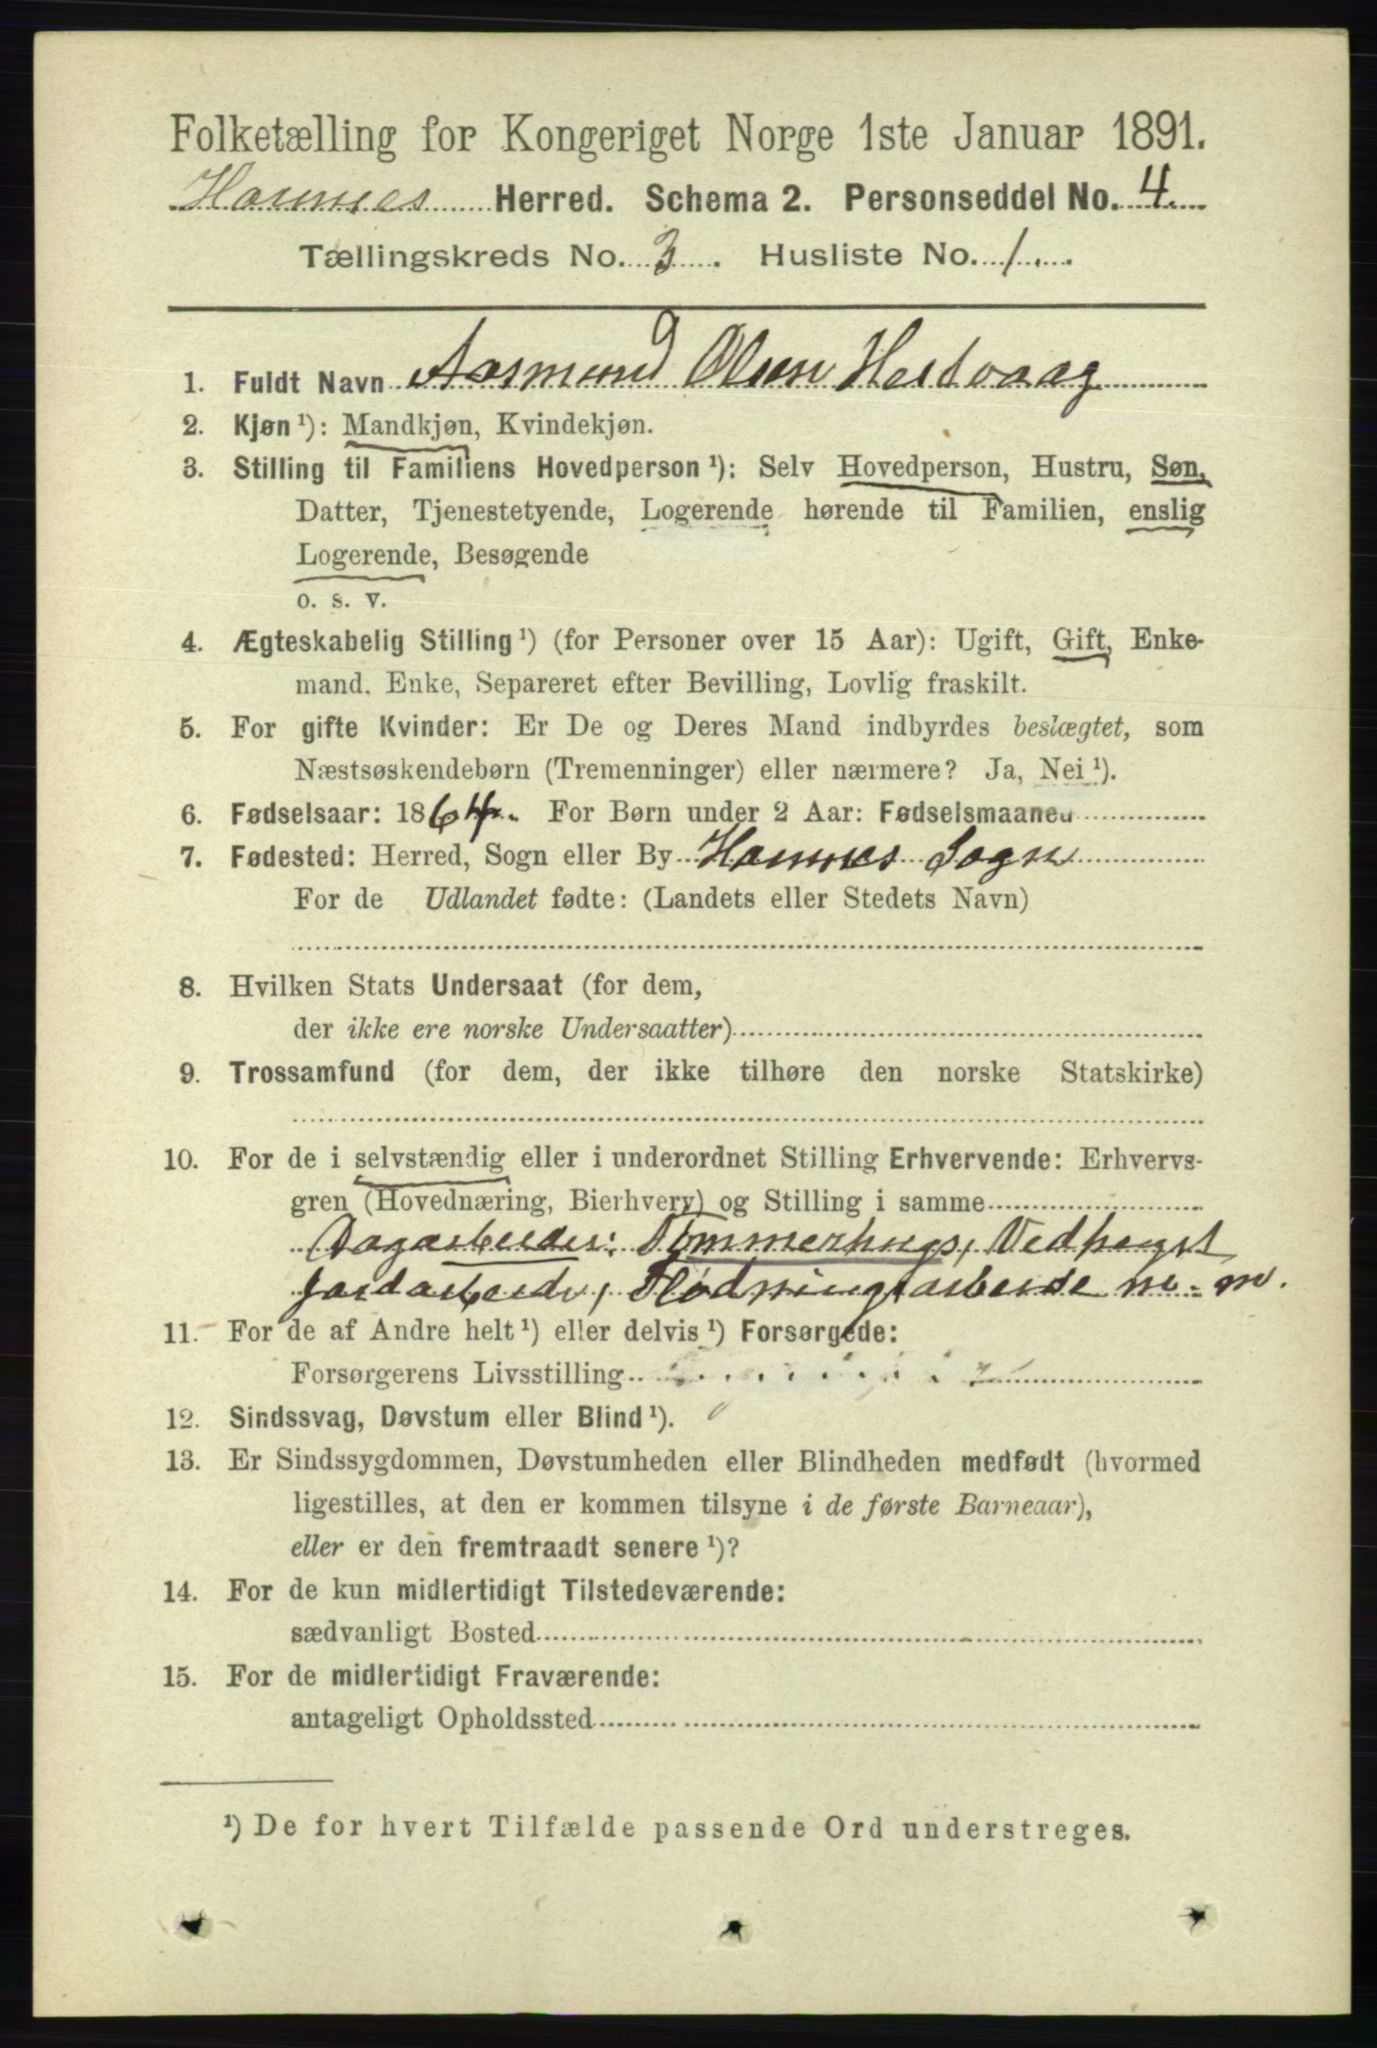 Folketælling for Kongeriget Norge 1ste Januar 1891.
Hornnes Herred. Schema 2. Personseddel No. 4.
Tællingskreds No. 3. Husliste No. 1.
1. Fuldt Navn Aasmund Olsen Hestvaag
2. Kjøn ¹): Mandkjøn, Kvindekjøn.
3. Stilling til Familiens Hovedperson ¹): Selv Hovedperson, Hustru, Søn,
Datter, Tjenestetyende, Logerende hørende til Familien, enslig
Logerende, Besøgende
o. s. v.
4. Ægteskabelig Stilling ¹) (for Personer over 15 Aar): Ugift, Gift, Enke-
mand. Enke, Separeret efter Bevilling, Lovlig fraskilt.
5. For gifte Kvinder: Er De og Deres Mand indbyrdes beslægtet, som
Næstsøskendebørn (Tremenninger) eller nærmere? Ja, Nei ¹).
6. Fødselsaar: 1864. For Børn under 2 Aar: Fødselsmaaned
7. Fødested: Herred, Sogn eller By Hornnes Sogn
For de Udlandet fødte: (Landets eller Stedets Navn)
8. Hvilken Stats Undersaat (for dem,
der ikke ere norske Undersaatter)
9. Trossamfund (for dem, der ikke tilhøre den norske Statskirke)
10. For de i selvstændig eller i underordnet Stilling Erhvervende: Erhvervs-
gren (Hovednæring, Bierhverv) og Stilling i samme
Dagarbeider: Tømmerhugs, Vedhugst
Jordarbeide, Flødningsarbeide m. m.
11. For de af Andre helt ¹) eller delvis ¹) Forsørgede:
Forsørgerens Livsstilling
12. Sindssvag, Døvstum eller Blind ¹).
13. Er Sindssygdommen, Døvstumheden eller Blindheden medfødt (hvormed
ligestilles, at den er kommen tilsyne i de første Barneaar),
eller er den fremtraadt senere ¹)?
14. For de kun midlertidigt Tilstedeværende:
sædvanligt Bosted
15. For de midlertidigt Fraværende:
antageligt Opholdssted
¹) De for hvert Tilfælde passende Ord understreges.